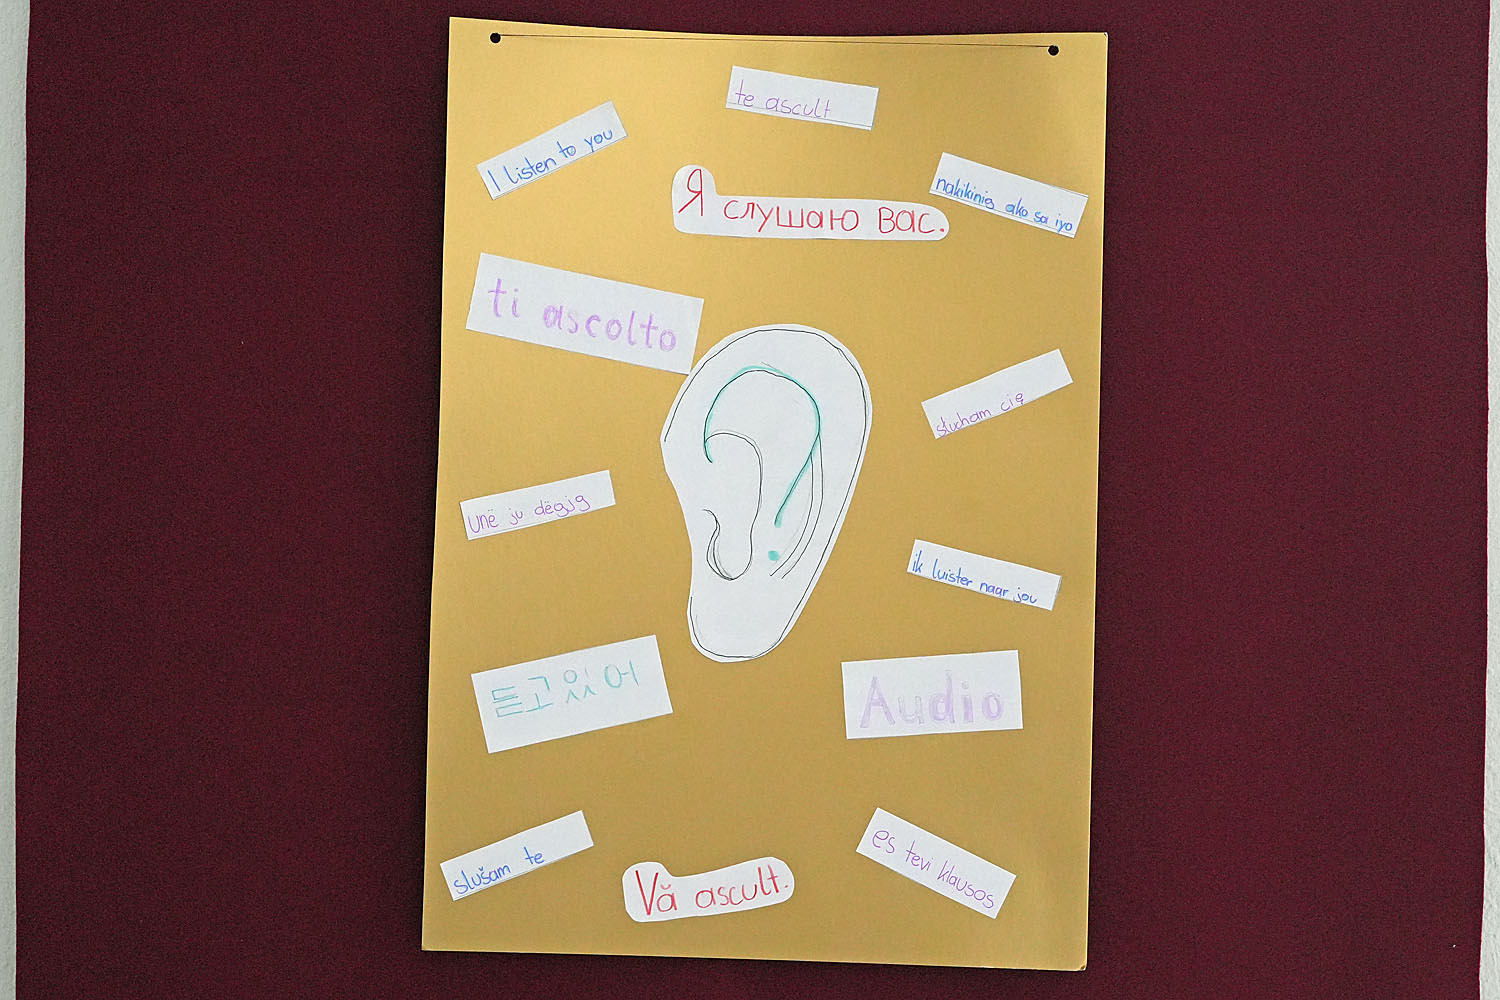 te ascult
I listen to you
nakikinig ako sa iyo
Я слушаю вас.
ti ascolto
słucham cię
Unë ju dëgjg
ik luister naar jou
듣고있어
Audio
slušam te
es tevi klausos
Vă ascult.